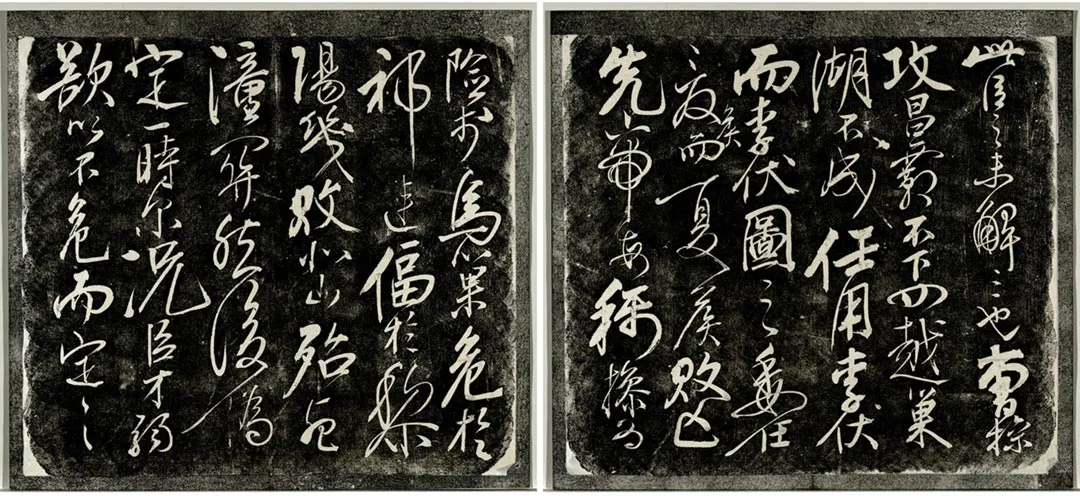 險於烏巢危於
祁連偪於黎
陽幾敗北山殆死
潼關然後偽
定一時爾況臣才弱
欲以不危而定之
此臣之未解三也曹操
攻昌霸不下四越巢
湖不成任用李伏
而李伏圖之委任
夏侯而夏侯敗亡
先帝每稱操為